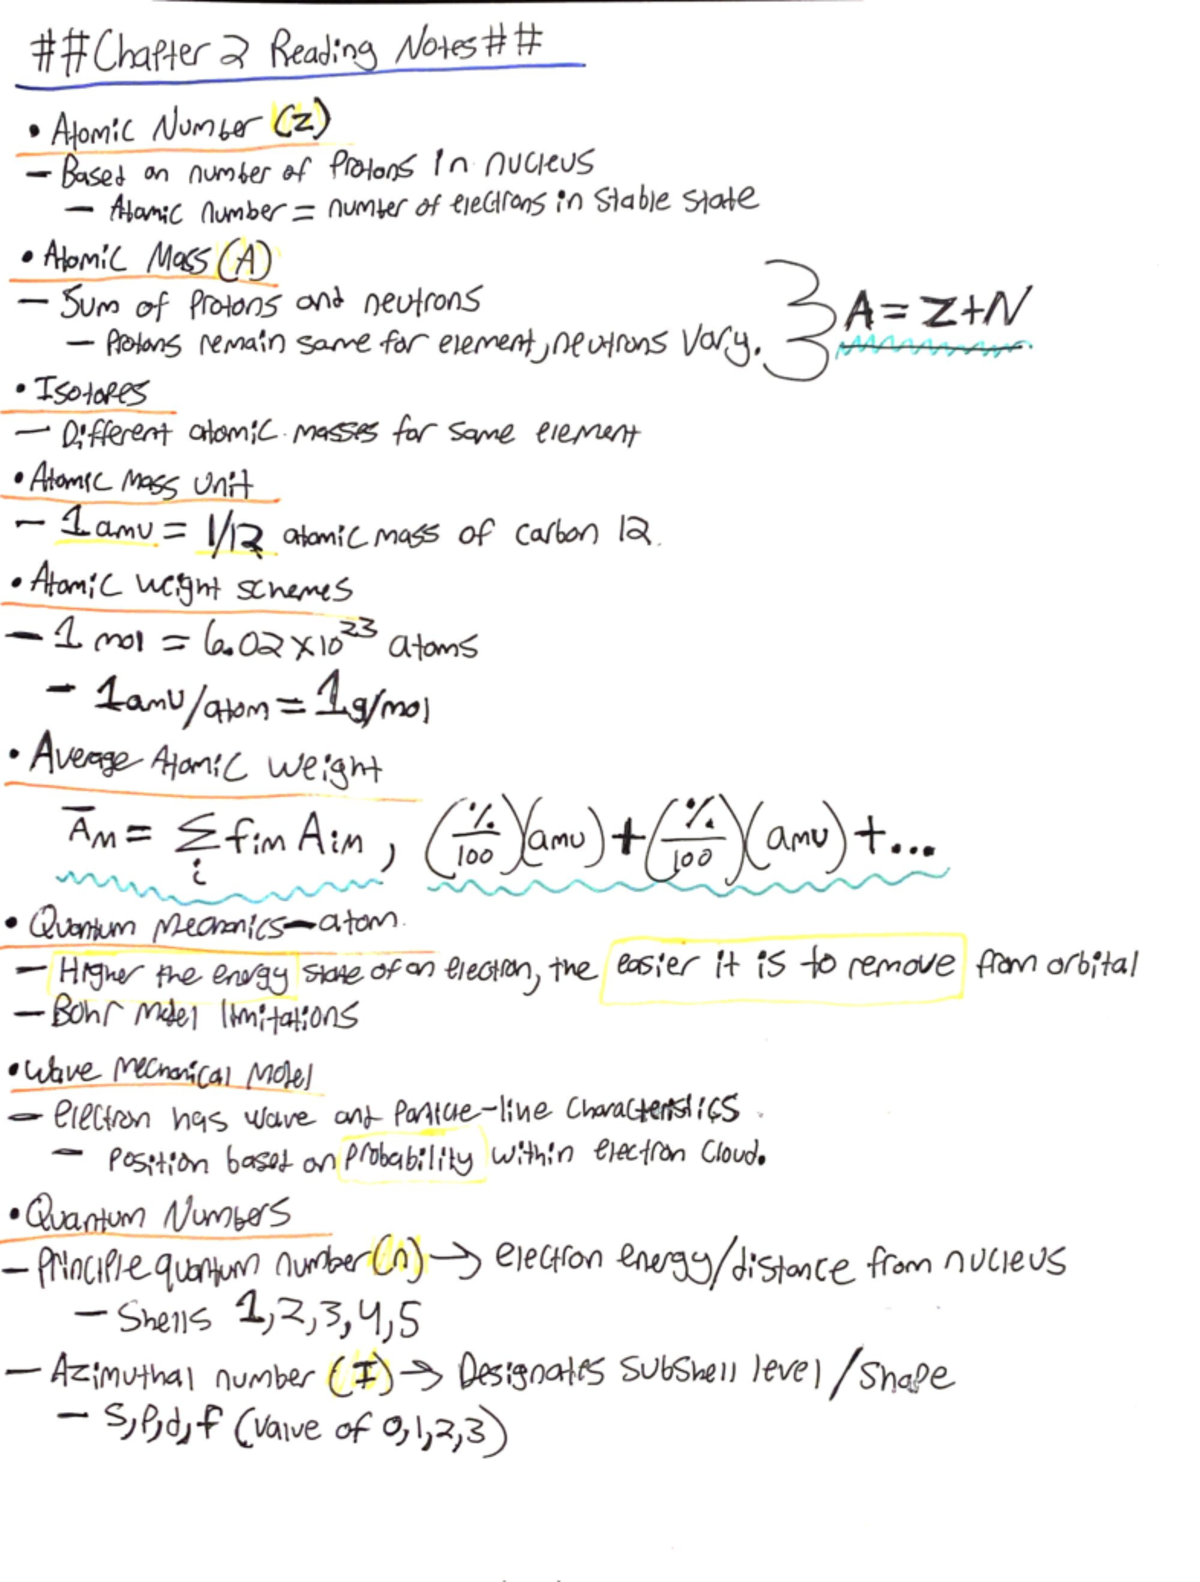 ##Chapter 2 Reading Notes##
• Atomic Number (Z)
- Based on number of Protons in nucleus
- Atomic number = number of electrons in stable state
• Atomic Mass (A)
- Sum of Protons and neutrons
- Protons remain same for element, neutrons vary.
A = Z+N
• Isotopes
- Different atomic masses for same element
• Atomic Mass Unit
- 1 amu = 1/12 atomic mass of carbon 12.
• Atomic weight schemes
- 1 mol = 6.02 x 10²³ atoms
- 1 amu/atom = 1 g/mol
• Average Atomic Weight
A̅M = Σi fim Aim, (%/100)(amu) + (%/100)(amu) + ...
• Quantum Mechanics - atom.
- Higher the energy state of an electron, the easier it is to remove from orbital
- Bohr Model limitations
• Wave Mechanical Model
- electron has wave and Particle-like Characteristics.
- Position based on probability within electron cloud.
• Quantum Numbers
- Principle quantum number (n) → electron energy/distance from nucleus
- Shells 1,2,3,4,5
- Azimuthal number (I) → Designates subshell level/shape
- s,p,d,f (value of 0,1,2,3)